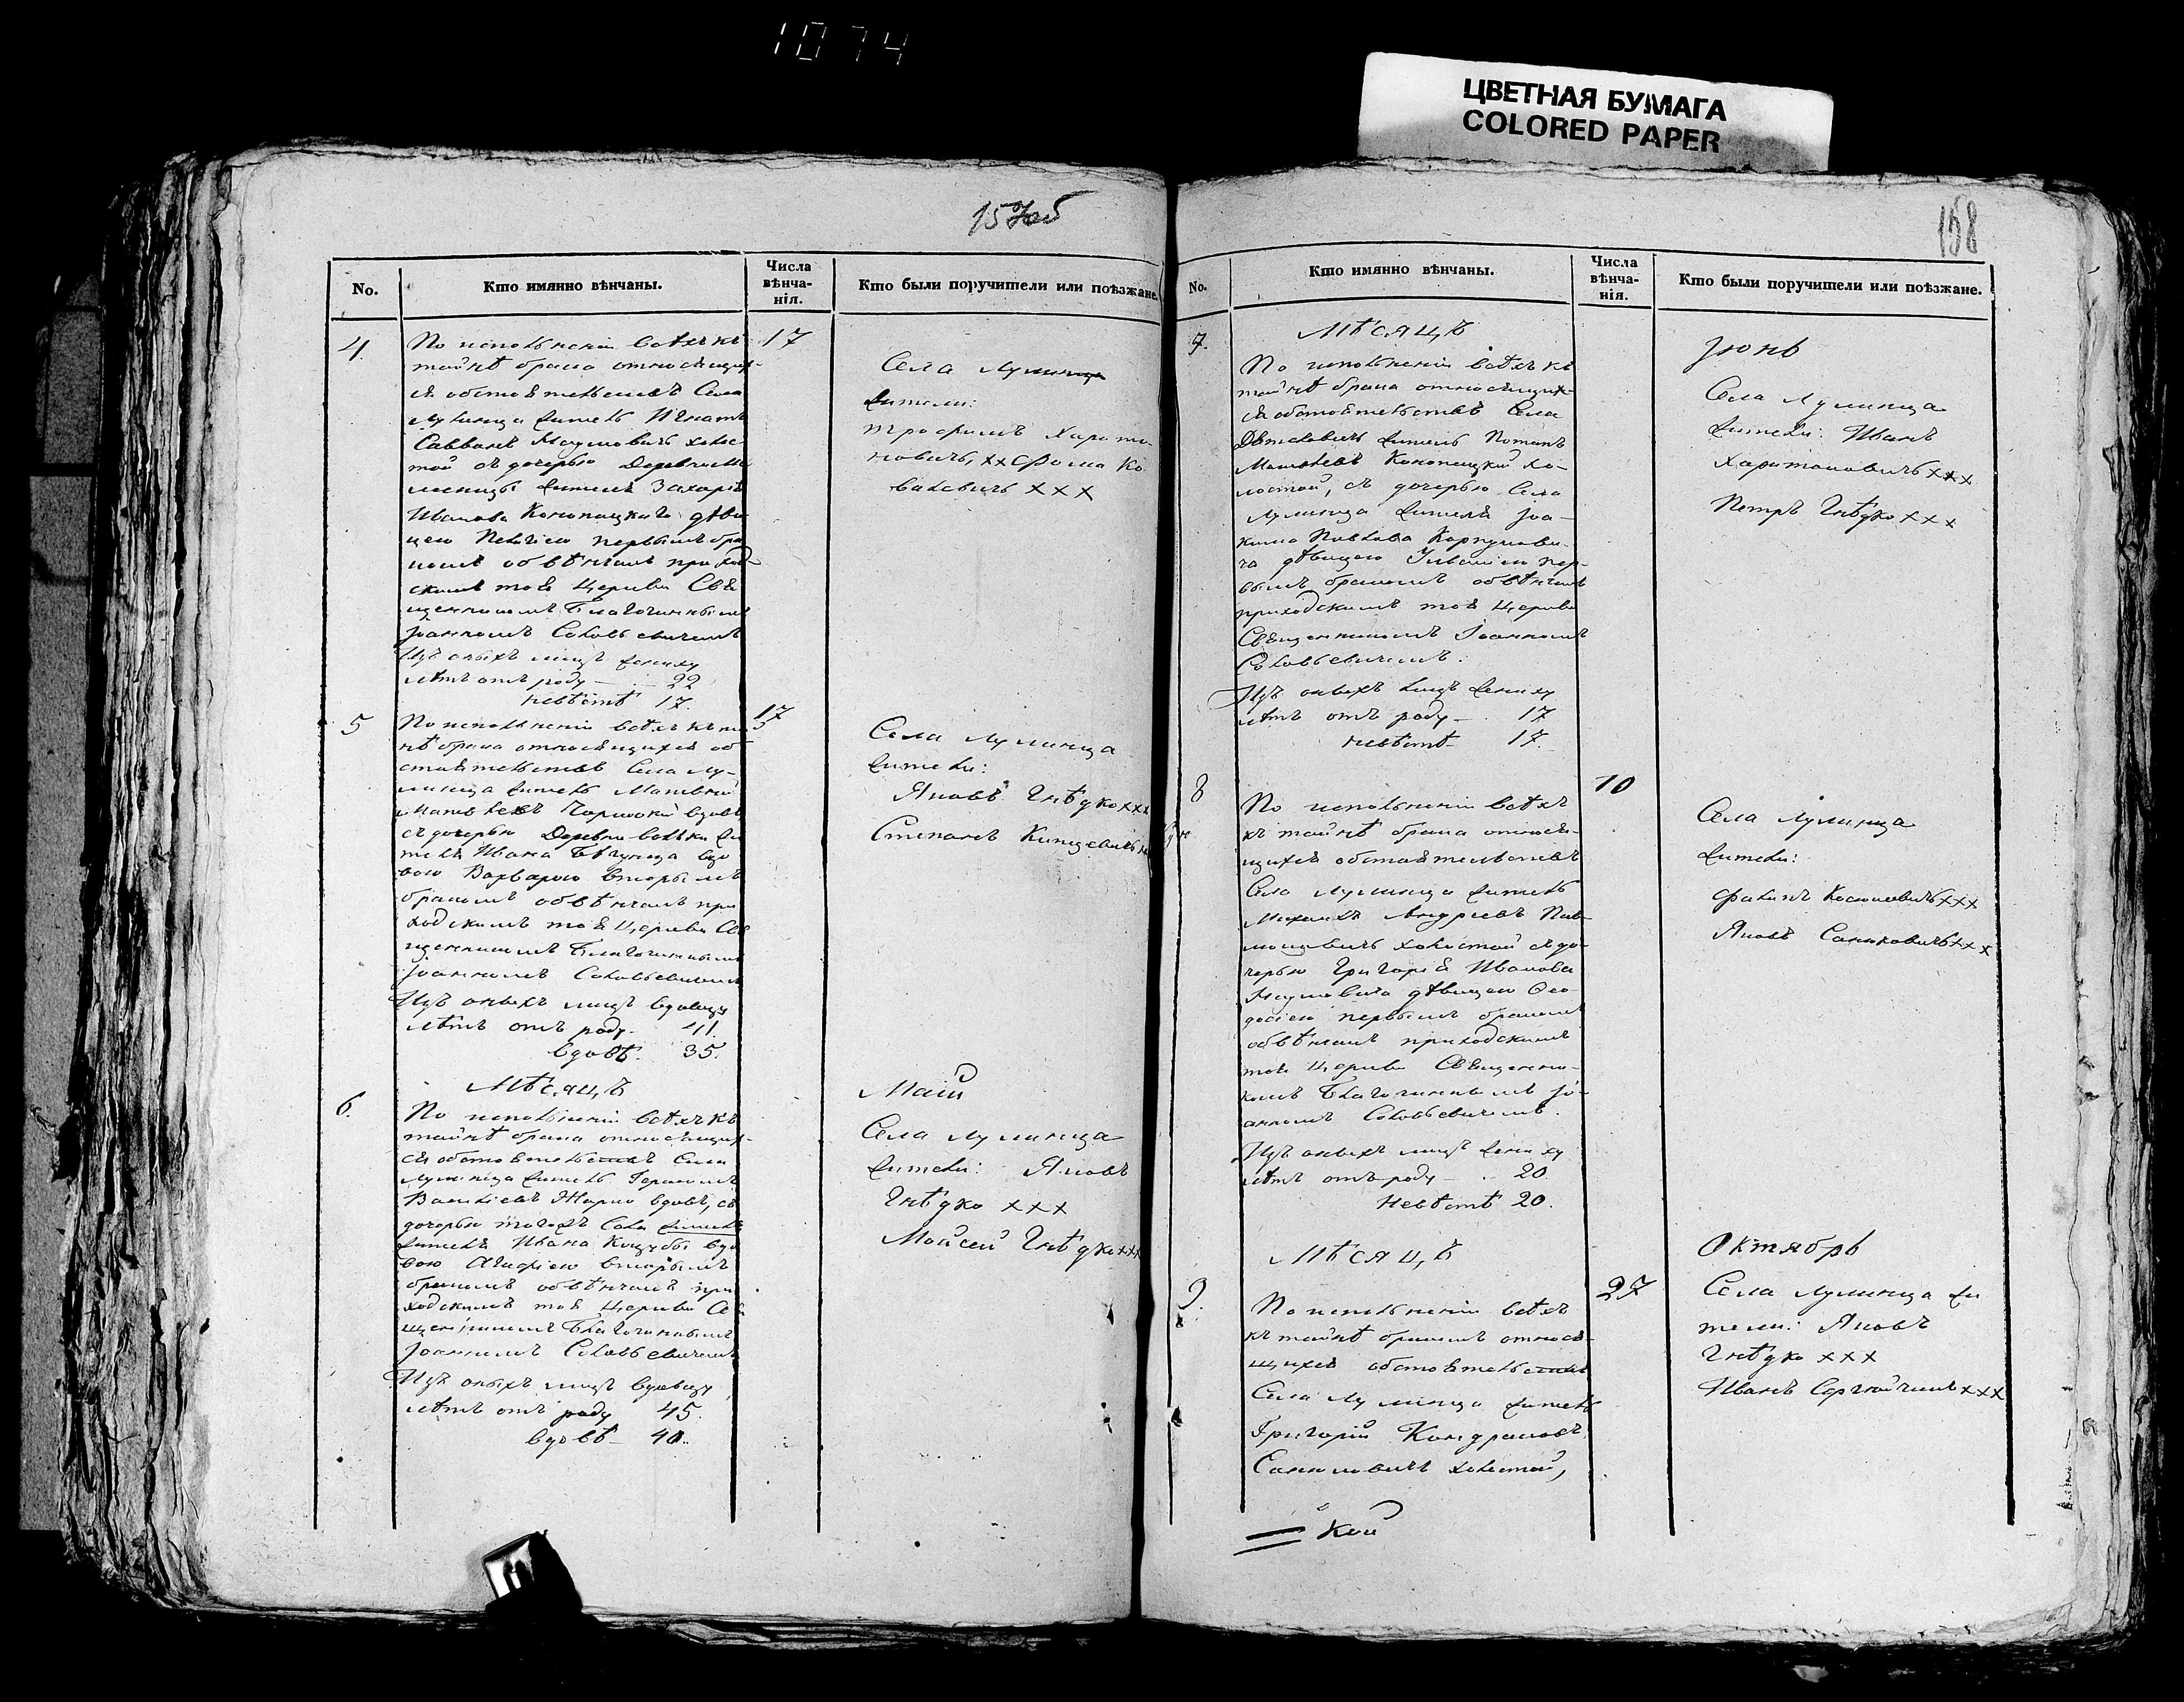 1074
ЦВЕТНАЯ БУМАГА
COLORED PAPER
157об
No.
Кто имянно вѣнчаны.
Числа
вѣнча-
нія.
Кто были поручители или поѣзжане.
4.
17
По исполненіи всѣхъ къ
тайнѣ брака относящих-
ся обстоятельствъ Села
Лунинца житель Игнатъ
Саввинъ холос
той съ дочерью Деревни
жителя Захарія
Иванова Конопацкаго дѣви
цею первымъ бра
комъ обвѣнчанъ приход-
скимъ тоя Церкви Свя
щенникомъ Благочиннымъ
Іоанномъ Соловьевичемъ
Изъ оныхъ лицъ жениху
лѣтъ отъ роду — 22
невѣстѣ 17.
Села Лунинца
жители:
Трофимъ Харито
новичъ, xx Фома Ко
валевичъ xxx
5
17
По исполненіи всѣхъ къ тай
нѣ брака относящихся об
стоятельствъ Села Лу-
нинца житель Матвей
вдовъ
съ дочерью Деревни жи
теля Ивана вдо
вою Варварою вторымъ
бракомъ обвѣнчанъ при
ходскимъ тоя Церкви Свя
щенникомъ Благочиннымъ
Іоанномъ Соловьевичемъ
Изъ оныхъ лицъ вдовцу
лѣтъ отъ роду. 41.
вдовѣ. 35.
Села Лунинца
жители:
Яковъ Гнѣдко xxx
Степанъ
Мѣсяцъ
Маій
6.
По исполненіи всѣхъ къ
тайнѣ брака относящих-
ся обстоятельствъ Села
Лунинца житель Герасимъ
Васильевъ Жарко вдовъ, съ
дочерью тогожъ Села
жителя Ивана Коцубы вдо
вою Агафіею вторымъ
бракомъ обвѣнчанъ при
ходскимъ тоя Церкви Свя
щенникомъ Благочиннымъ
Іоанномъ Соловьевичемъ
Изъ оныхъ лицъ вдовцу
лѣтъ отъ роду 45.
вдовѣ — 40.
Села Лунинца
жители: Яковъ
Гнѣдко xxx
Моисей Гнѣдко xxx
158
No.
Кто имянно вѣнчаны.
Числа
вѣнча-
нія.
Кто были поручители или поѣзжане.
Мѣсяцъ
Іюнь
7.
По исполненіи всѣхъ къ
тайнѣ брака относящих-
ся обстоятельствъ Села
житель Потапъ
Матвеевъ Конопацкій хо-
лостой, съ дочерью Села
Лунинца жителя Іоа-
кима Павлова
ча дѣвицею пер-
вымъ бракомъ обвѣнчанъ
приходскимъ тоя Церкви
Священникомъ Іоанномъ
Соловьевичемъ.
Изъ оныхъ лицъ жениху
лѣтъ отъ роду — 17
невѣстѣ 17.
Села Лунинца
жители: Иванъ
Харитоновичъ xxx
Петръ Гнѣдко xxx
8
10
По исполненіи всѣхъ
къ тайнѣ брака относя-
щихся обстоятельствъ
Села Лунинца житель
Михаилъ Андреевъ
холостой съ до-
черью Григорія Иванова
дѣвицею Ѳео-
досіею первымъ бракомъ
обвѣнчанъ приходскимъ
тоя Церкви Священни-
комъ Благочиннымъ Іо-
анномъ Соловьевичемъ.
Изъ оныхъ лицъ жениху
лѣтъ отъ роду — 20.
Невѣстѣ 20.
Села Лунинца
жители:
xxx
Яковъ xxx
Мѣсяцъ
Октябрь
9.
27
По исполненіи всѣхъ
къ тайнѣ бракомъ относя-
щихся обстоятельствъ
Села Лунинца житель
Григорій Кондратовъ
холостой,
Села Лунинца жи
тели: Яковъ
Гнѣдко xxx
Иванъ xxx